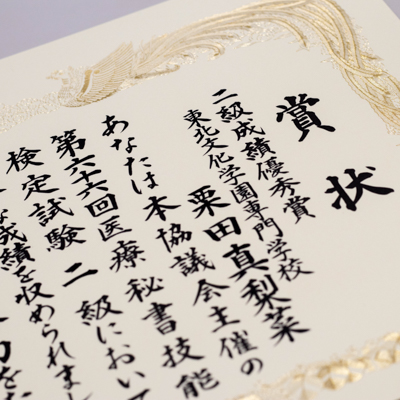 賞状
二級成績優秀賞
東北文化学園専門学校
粟田真梨菜
あなたは本協議会主催の
第六十六回医療秘書技能
検定試験二級において
な成績を収められまし
力を